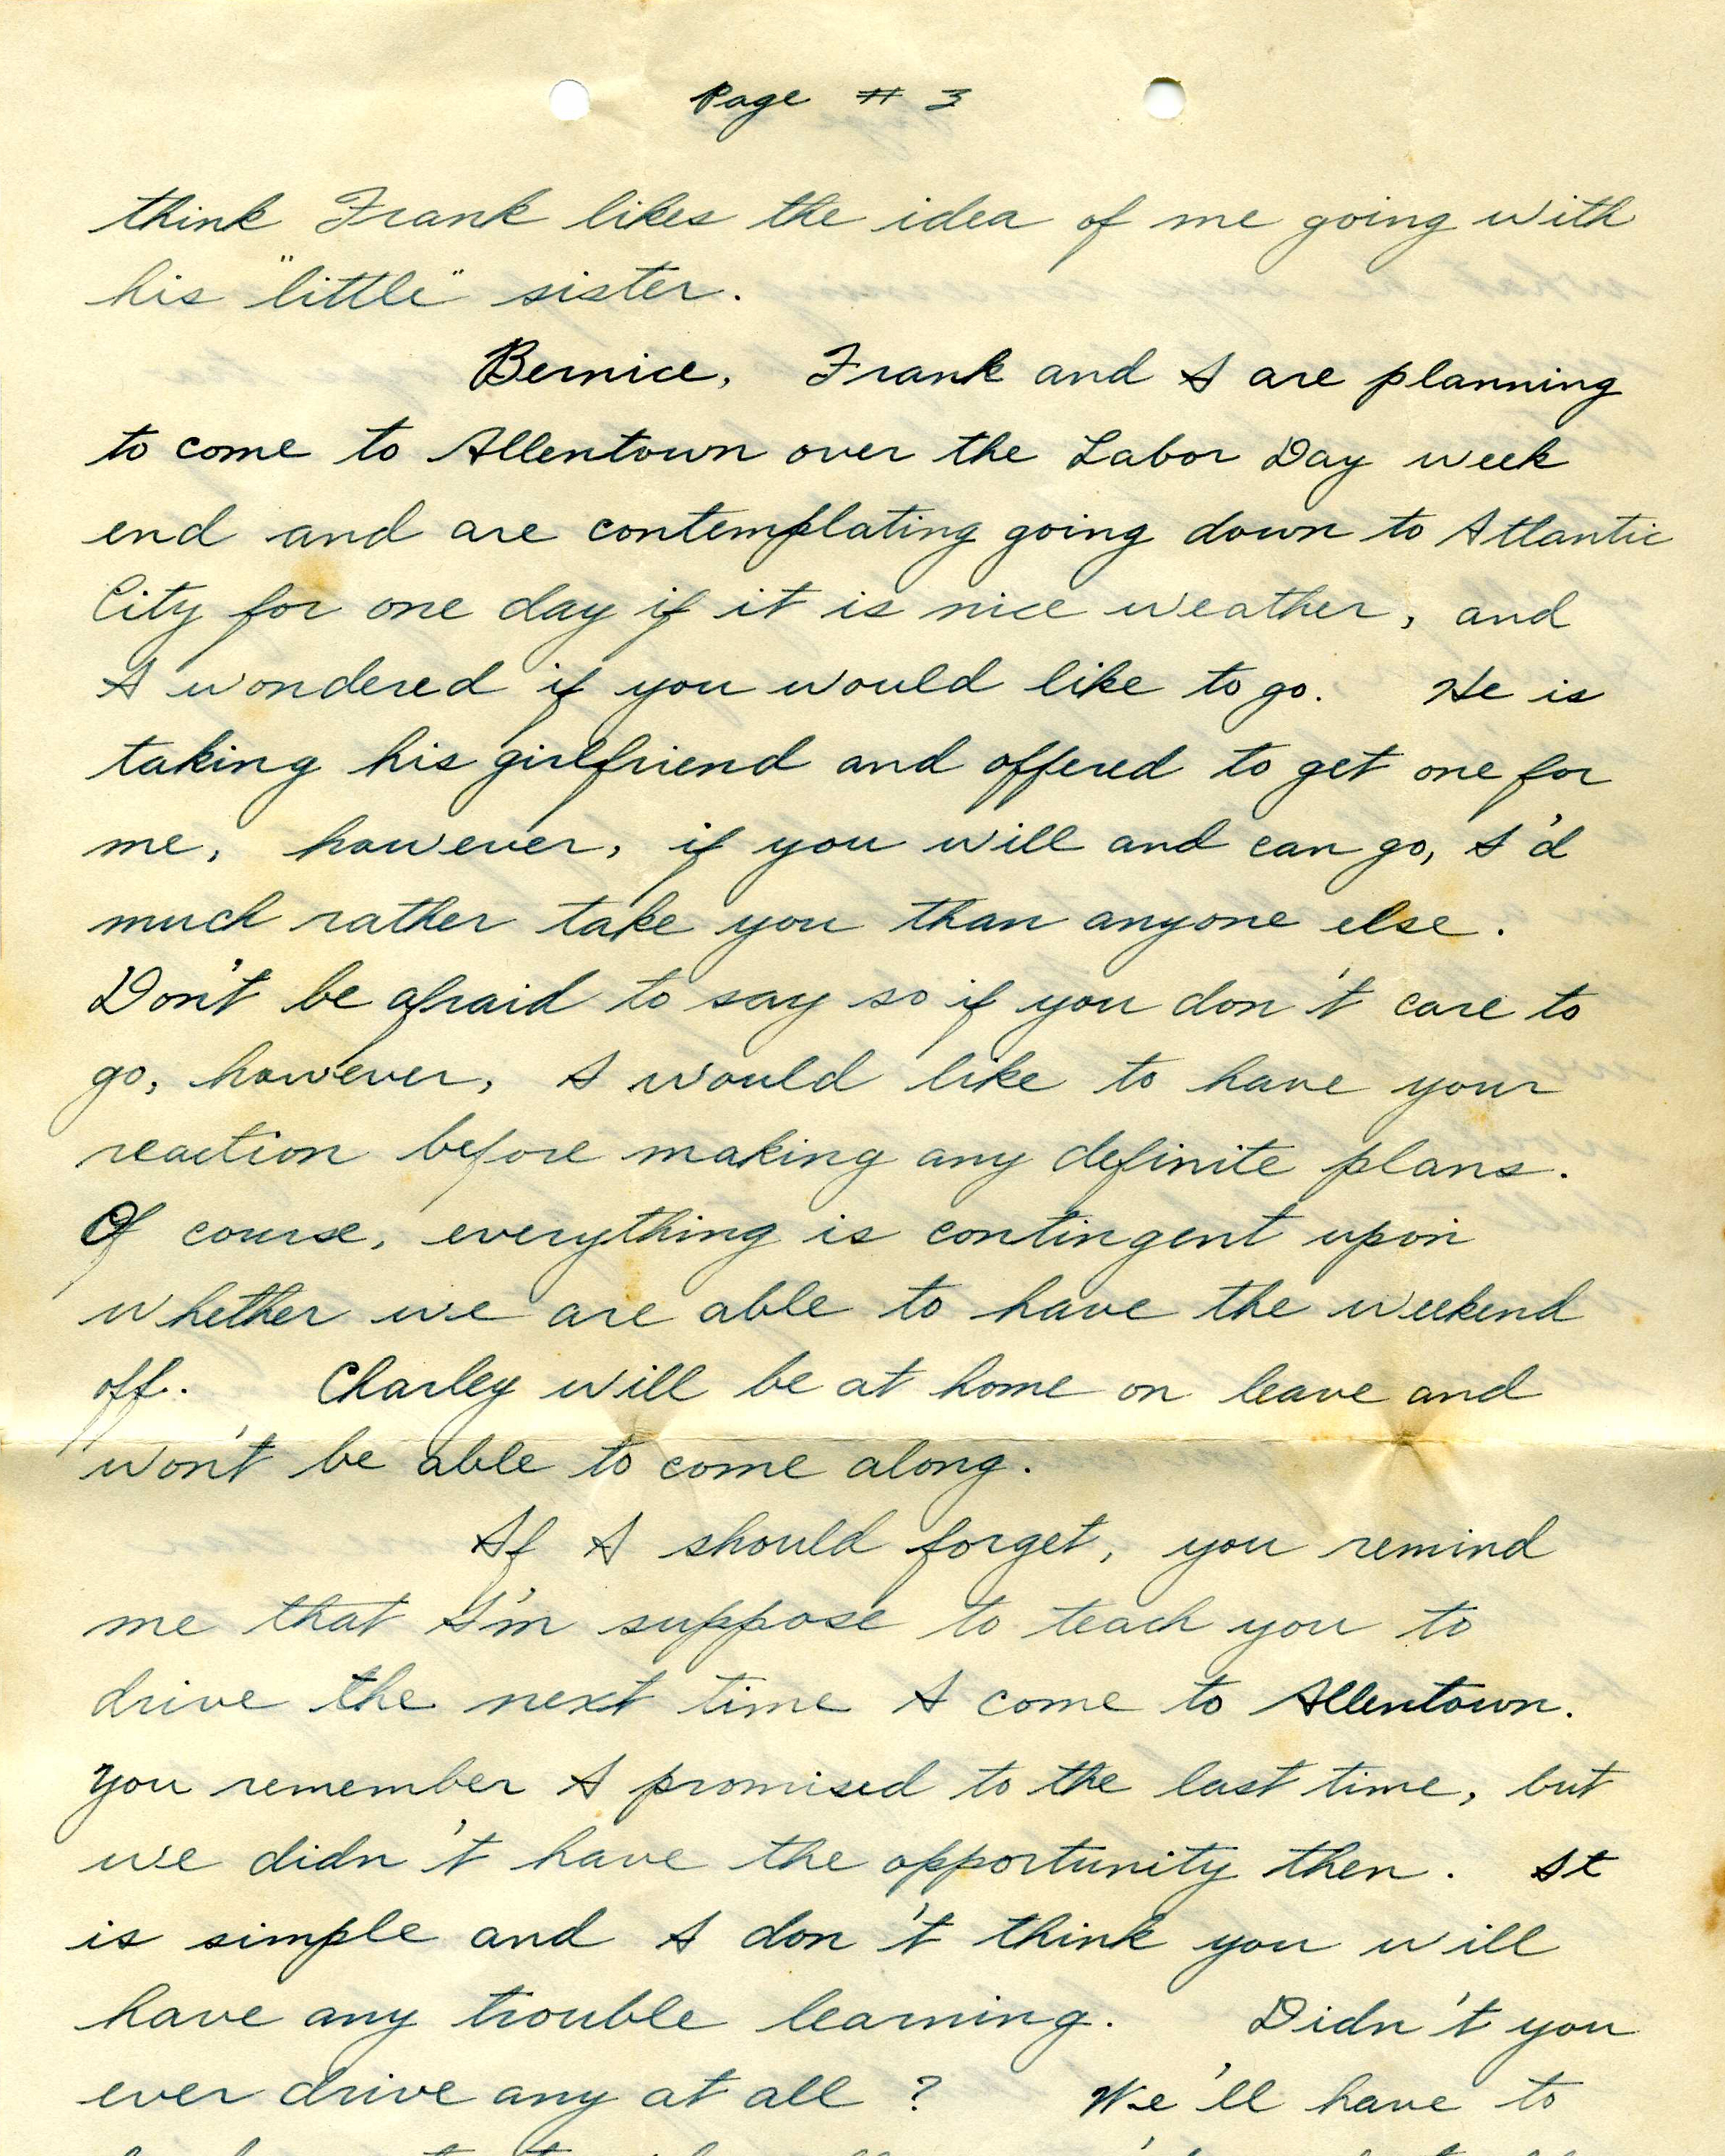 Page # 3
think Frank likes the idea of me going with
his "little" sister.
Bernice, Frank and I are planning
to come to Allentown over the Labor Day week
end and are contemplating going down to Atlantic
City for one day if it is nice weather, and
I wondered if you would like to go. He is
taking his girlfriend and offered to get one for
me, however, if you will and can go, I'd
much rather take you than anyone else.
Don't be afraid to say so if you don't care to
go, however, I would like to have your
reaction before making any definite plans.
Of course, everything is contingent upon
whether we are able to have the weekend
off. Charley will be at home on leave and
won't be able to come along.
If I should forget, you remind
me that I'm suppose to teach you to
drive the next time I come to Allentown.
You remember I promised to the last time, but
we didn't have the opportunity then. It
is simple and I don't think you will
have any trouble learning. Didn't you
ever drive any at all? We'll have to